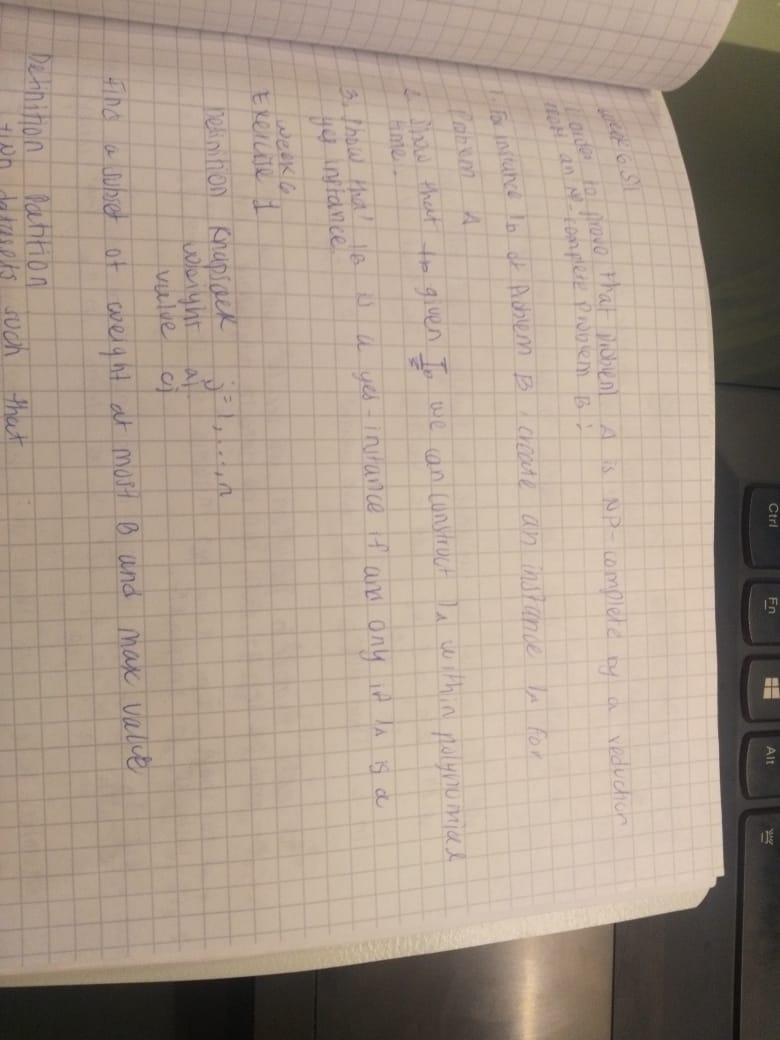 Ctrl
Fn
Alt
week 6 S1
order to prove that problem A is NP-complete by a reduction
from an NP-complete Problem B:
1. For instance IB of Problem B, create an instance IA for
Problem A
2. Show that given IB we can construct IA within polynomial
time.
3. Show that IB is a yes-instance if and ony if IA is a
yes instance.
week 6
Exercise 1
Definition Knapsack j=1,...,n
weight aj
value cj
Find a subset of weight at most B and max value
Definition Patition
such that